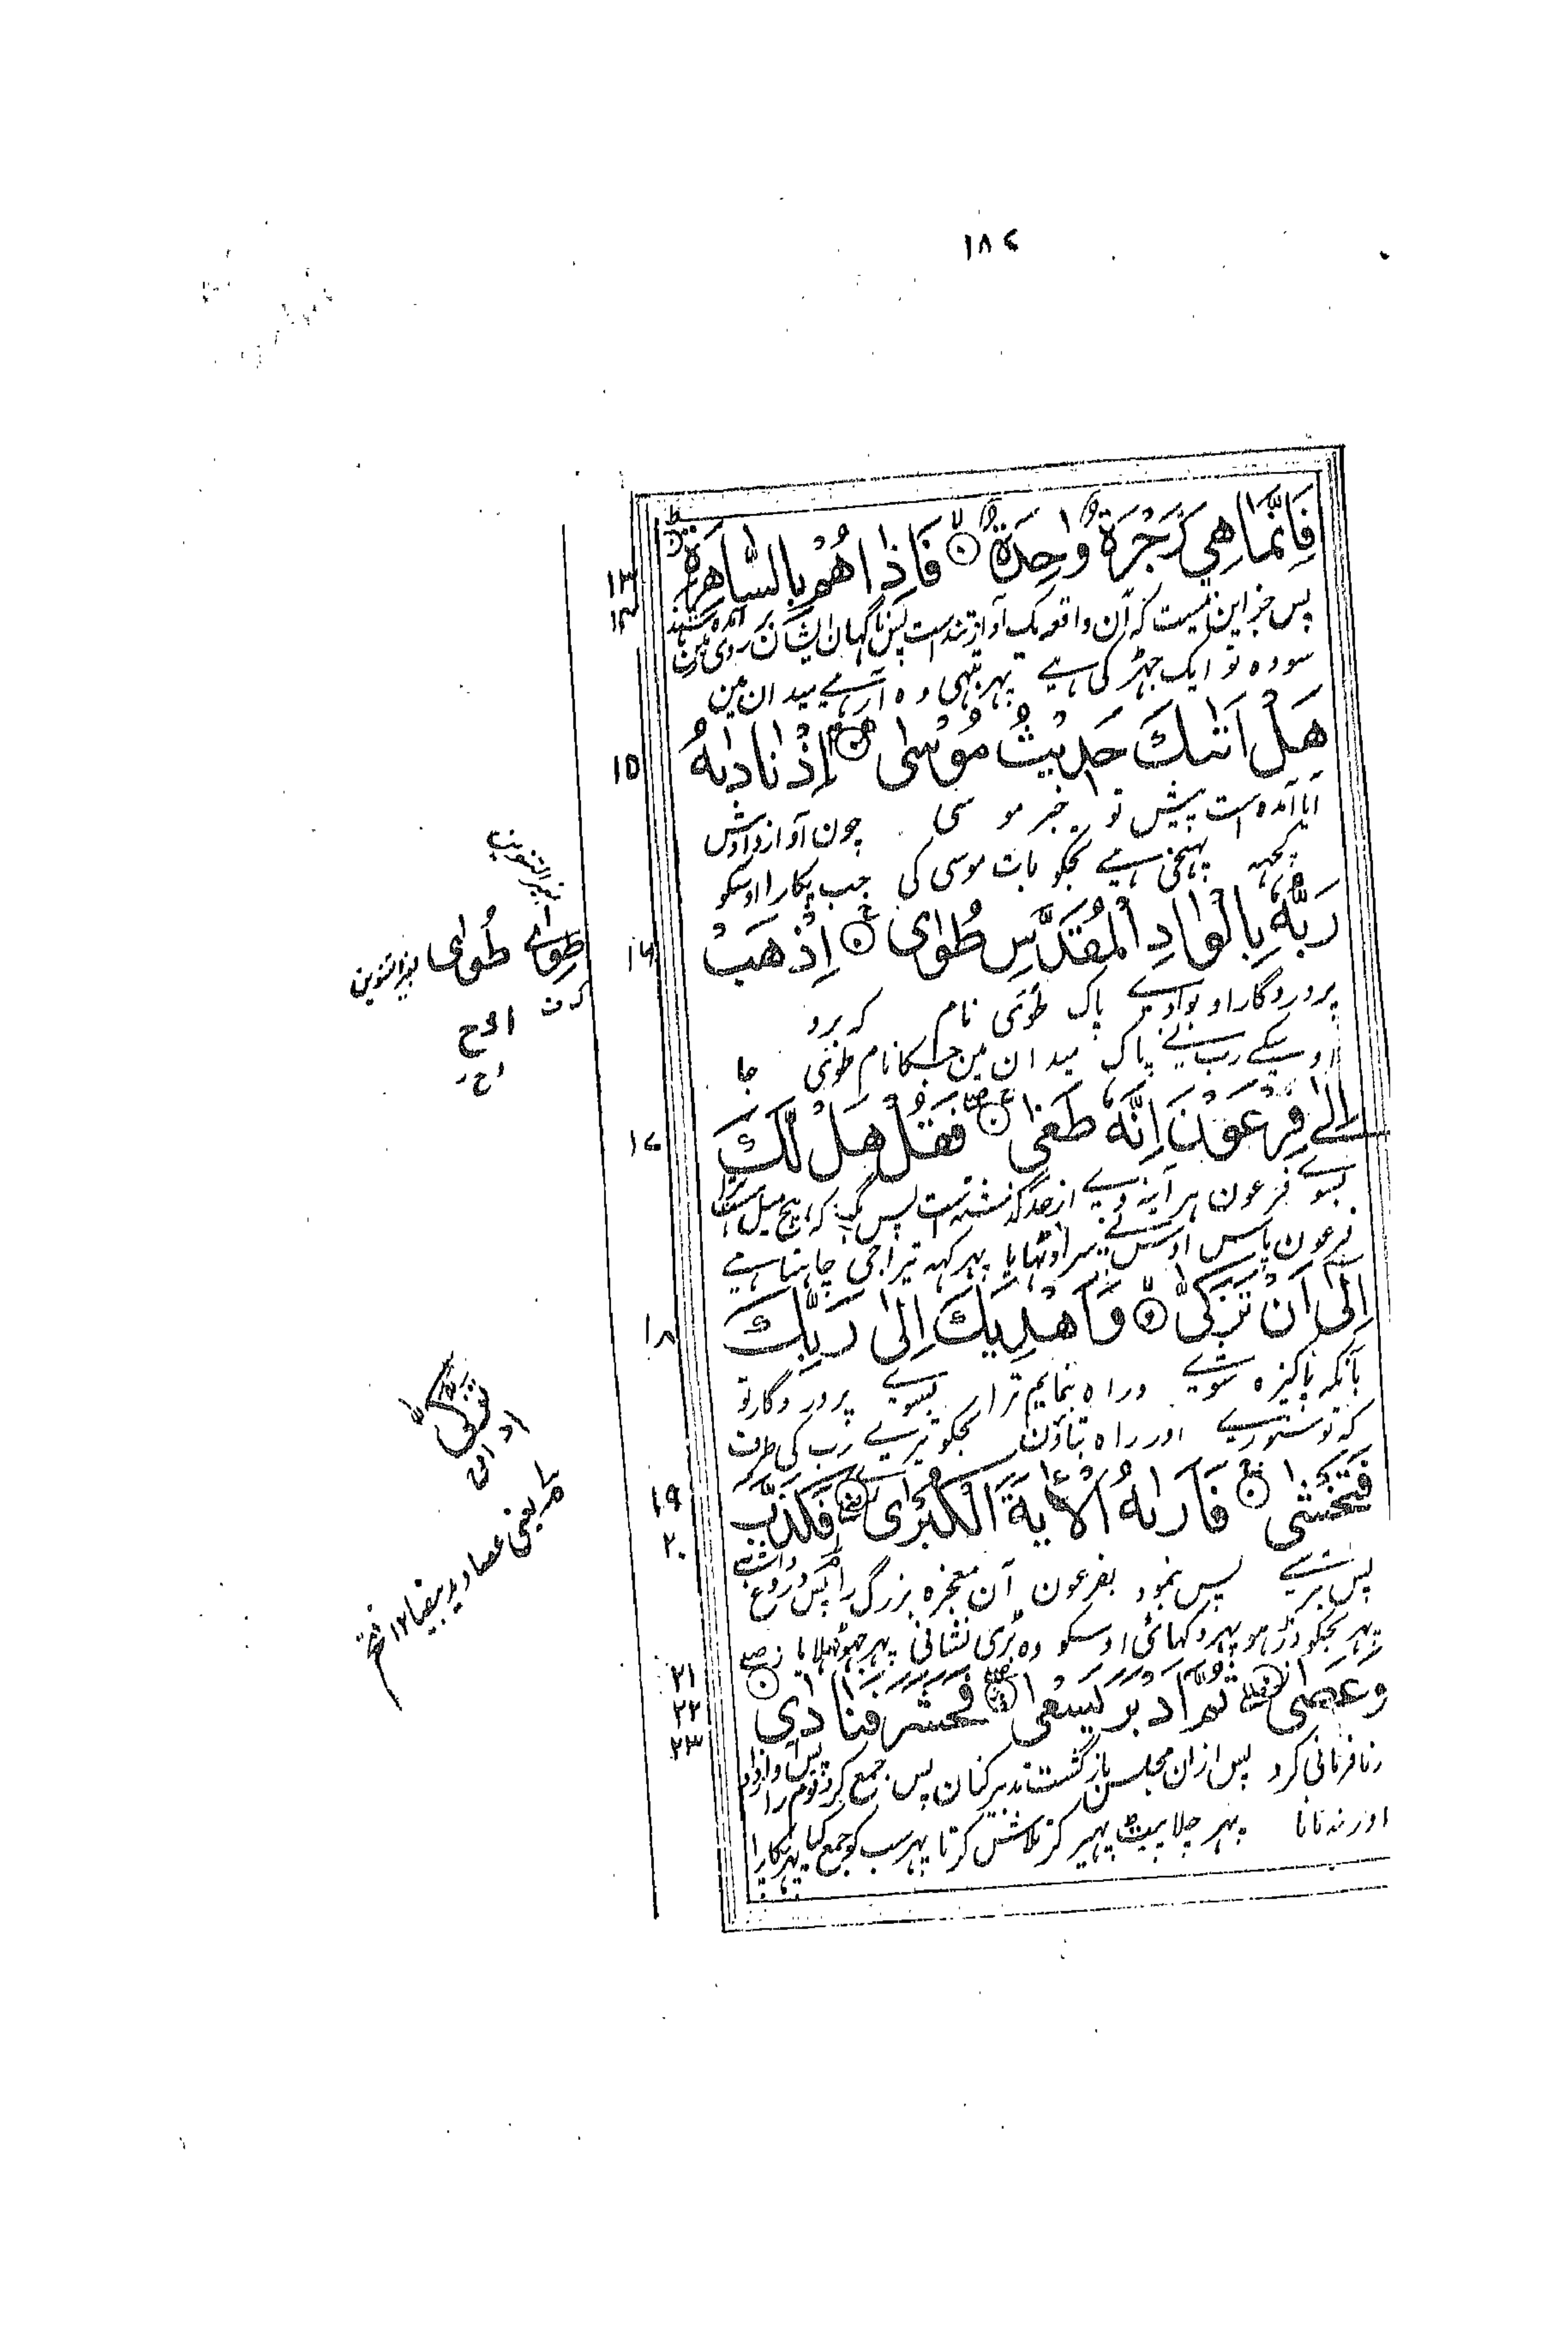 ١٨٤
فَاِنَّمَا هِيَ زَجْرَةٌ وَّاحِدَةٌ فَاِذَا هُمْ بِالسَّاهِرَةِ
١٣
١٤
پس جز این نیست که آن واقعه یک آواز تند است پس ناگهان ایشان بر روی زمین آمده باشند
سو وہ تو ایک جہڑکی ہے پہر تبہی وہ آرہے میدان مین
هَلْ اَتٰىكَ حَدِيْثُ مُوْسٰى اِذْ نَادٰىهُ
١٥
آیا آمده است پیش تو خبر موسی چون آواز دادش
کچہہ پہنچی ہے تجکو بات موسی کی جب پکارا اوسکو
رَبُّهٗ بِالْوَادِ الْمُقَدَّسِ طُوًى اِذْهَبْ
١٦
پروردگار او بوادی پاک طوی نام که برو
اوسکے رب نے پاک میدان مین جسکا نام طوی جا
اِلٰى فِرْعَوْنَ اِنَّهٗ طَغٰى فَقُلْ هَلْ لَّكَ
١٧
بسوے فرعون هر آینه وے از حد گذشته است پس بگو که هیچ میل است ترا
فرعون پاس اوسنے سر اوٹہایا پہر کہہ تیرا جی چاہتا ہے
اِلٰى اَنْ تَزَكّٰى وَاَهْدِيَكَ اِلٰى رَبِّكَ
١٨
بآنکه پاکیزه شوے و راه نمایم ترا بسوے پروردگار تو
کہ تو سنورے اور راہ بتاؤن تجکو تیرے رب کی طرف
فَتَخْشٰى فَاَرٰىهُ الْاٰيَةَ الْكُبْرٰى فَكَذَّبَ
١٩
٢٠
پس بترسے پس نمود بفرعون آن معجزه بزرگ را پس دروغ داشت
پہر تجکو ڈر ہو پہر دکہائی اوسکو وہ بڑی نشانی پہر جہوٹہلایا
وَعَصٰى ثُمَّ اَدْبَرَ يَسْعٰى فَحَشَرَ فَنَادٰى
٢١
٢٢
٢٣
و نافرمانی کرد پس ازان مجلس بازگشت تدبیر کنان پس جمع کرد قوم را پس آواز داد
اور نہ مانا پہر چلا پیٹہ پہیر کر تلاش کرتا پہر سب کو جمع کیا پہر پکارا
بغیر التنوین
طِوٰى طُوٰى بغیر التنوین
تزکى
یعنی عصا و ید بیضا ١٢